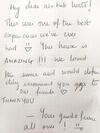 Hey dear air bnb hosts!
This was one of the best
experiences we've ever
had ♡ You house is
AMAZING!!! We loved
the sauce and would definitely
recommend you again to
THANK YOU
- Your guests from
all over! ☺